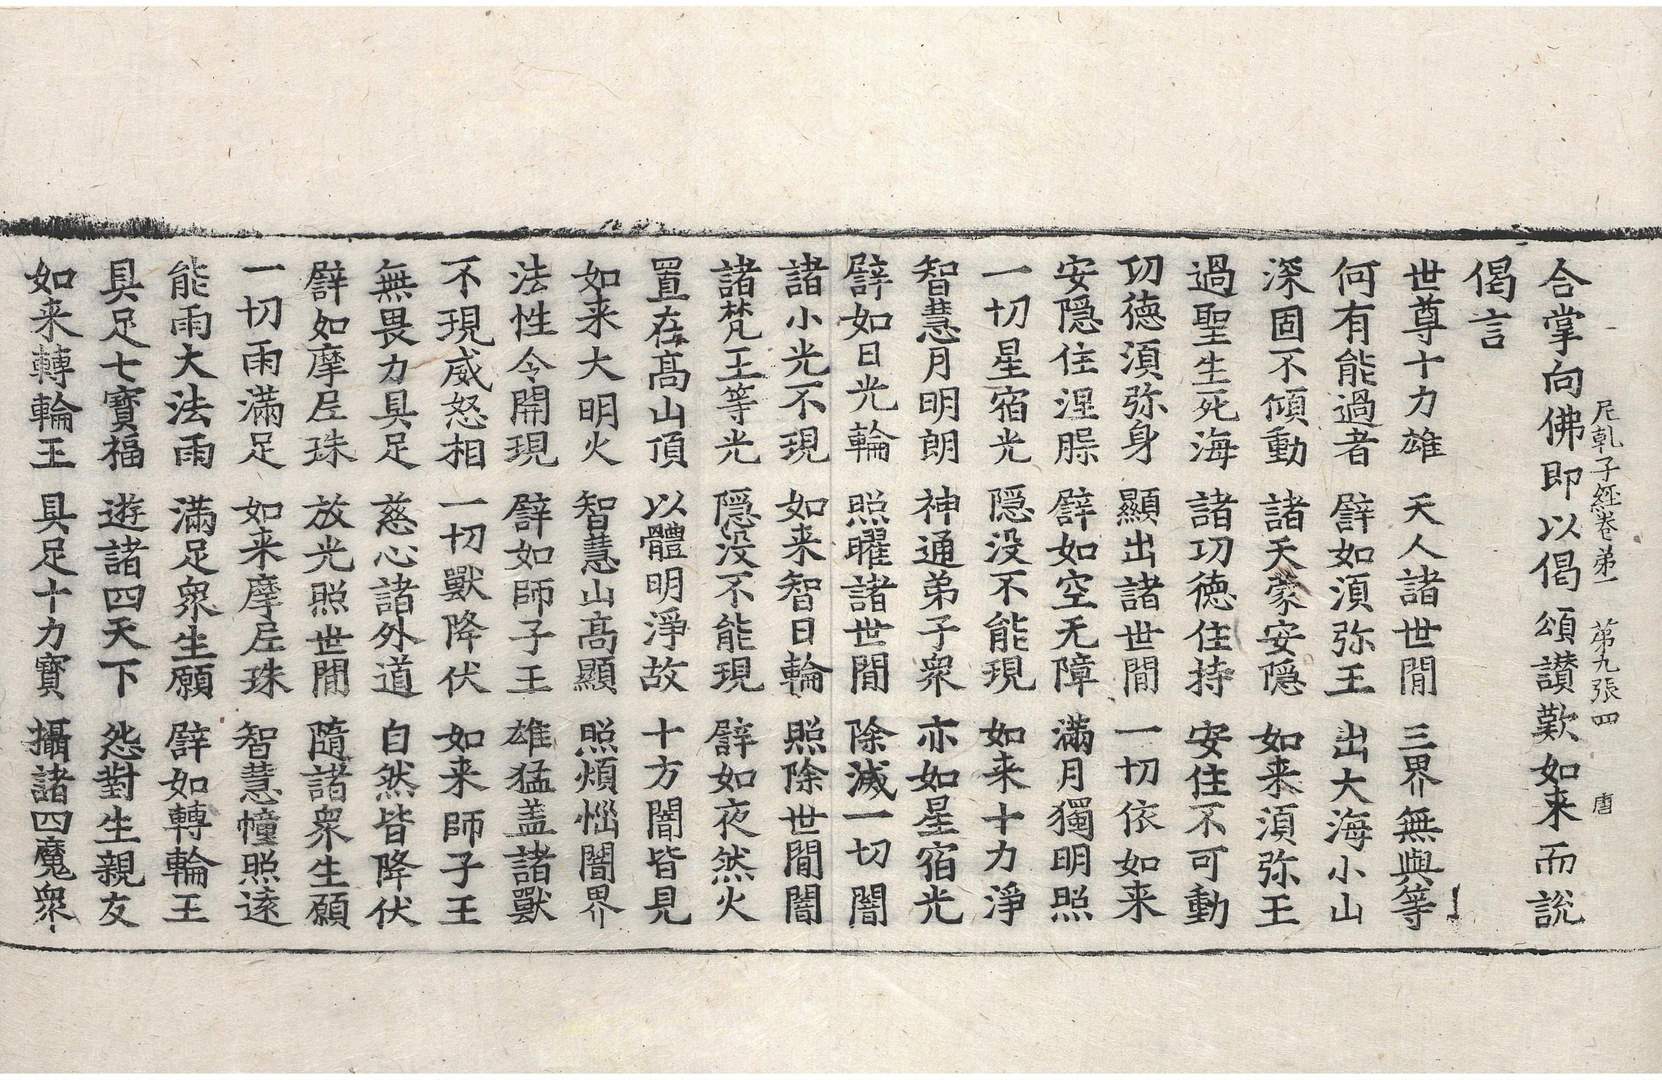 尼乹子經卷苐一　苐九張四　唐
合掌向佛即以偈頌讃歎如来而說
偈言
世尊十力雄　天人諸世閒　三界無與等
何有能過者　譬如湏弥王　出大海小山
深固不傾動　諸天蒙安隠　如来湏弥王
過聖生死海　諸㓛徳住持　安住不可動
㓛徳湏弥身　顯出諸世閒　一切依如来
安隠住涅𦙶　譬如空无障　滿月獨明照
一切星宿光　隠没不能現　如来十力淨
智慧月明朗　神通弟子衆　亦如星宿光
譬如日光輪　照曜諸世閒　除滅一切闇
諸小光不現　如来智日輪　照除世閒闇
諸梵王等光　隠没不能現　譬如夜然火
置在髙山頂　以體明淨故　十方闇皆見
如来大明火　智慧山髙顯　照煩惱闇界
法性令開現　譬如師子王　雄猛盖諸獸
不現威怒相　一切獸降伏　如来師子王
無畏力具足　慈心諸外道　自然皆降伏
譬如摩尼珠　放光照世閒　隨諸衆生願
一切雨滿足　如来摩尼珠　智慧幢照逺
能雨大法雨　滿足衆生願　譬如轉輪王
具足七寶福　遊諸四天下　怨對生親友
如来轉輪王　具足十力寶　攝諸四魔衆